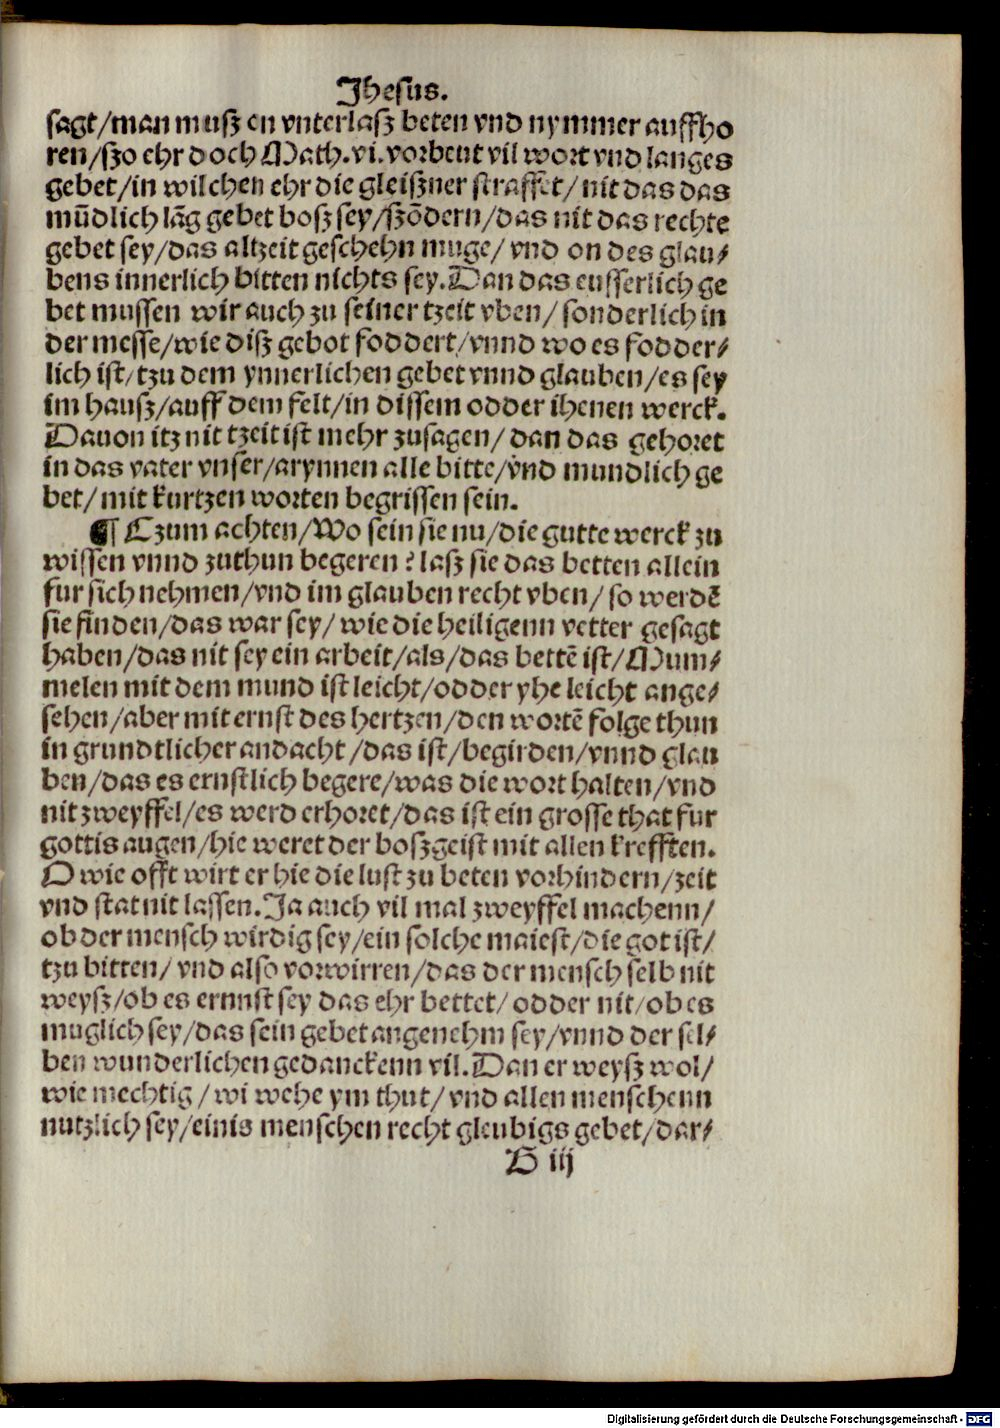 Jhesus.
sagt/man musz on vnterlasz beten vnd nymmer auffho
ren/szo ehr doch Math.vi.vorbeut vil wort vnd langes
gebet/in wilchen ehr die gleiszner straffet/nit das das
mūdlich lāg gebet bosz sey/szōdern/das nit das rechte
gebet sey/das altzeit geschehn muge/vnd on des glau⸗
bens innerlich bitten nichts sey.Dan das eusserlich ge
bet mussen wir auch zu seiner tzeit vben/sonderlich in
der messe/wie disz gebot foddert/vnnd wo es fodder⸗
lich ist/tzu dem ynnerlichen gebet vnnd glauben/es sey
im hausz/auff dem felt/in dissem odder ihenen werck.
Dauon itz nit tzeit ist mehr zusagen/dan das gehoret
in das vater vnser/arynnen alle bitte/vnd mundlich ge
bet/mit kurtzen worten begrissen sein.
¶ Czum achten/Wo sein sie nu/die gutte werck zu
wissen vnnd zuthun begeren? lasz sie das betten allein
fur sich nehmen/vnd im glauben recht vben/so werdē
sie finden/das war sey/wie die heiligenn vetter gesagt
haben/das nit sey ein arbeit/als/das bettē ist/Mum⸗
melen mit dem mund ist leicht/odder yhe leicht ange⸗
sehen/aber mit ernst des hertzen/den wortē folge thun
in grundtlicher andacht/das ist/begirden/vnnd glau
ben/das es ernstlich begere/was die wort halten/vnd
nit zweyffel/es werd erhoret/das ist ein grosse that fur
gottis augen/hie weret der boszgeist mit allen krefften.
O wie offt wirt er hie die lust zu beten vorhindern/zeit
vnd stat nit lassen.Ja auch vil mal zweyffel machenn/
ob der mensch wirdig sey/ein solche maiest/die got ist/
tzu bitten/vnd also vorwirren/das der mensch selb nit
weysz/ob es ernnst sey das ehr bettet/odder nit/ob es
muglich sey/das sein gebet angenehm sey/vnnd der sel⸗
ben wunderlichen gedanckenn vil.Dan er weysz wol/
wie mechtig/wi wehe ym thut/vnd allen menschenn
nutzlich sey/einis menschen recht gleubigs gebet/dar⸗
B iij
Digitalisierung gefördert durch die Deutsche Forschungsgemeinschaft - DFG